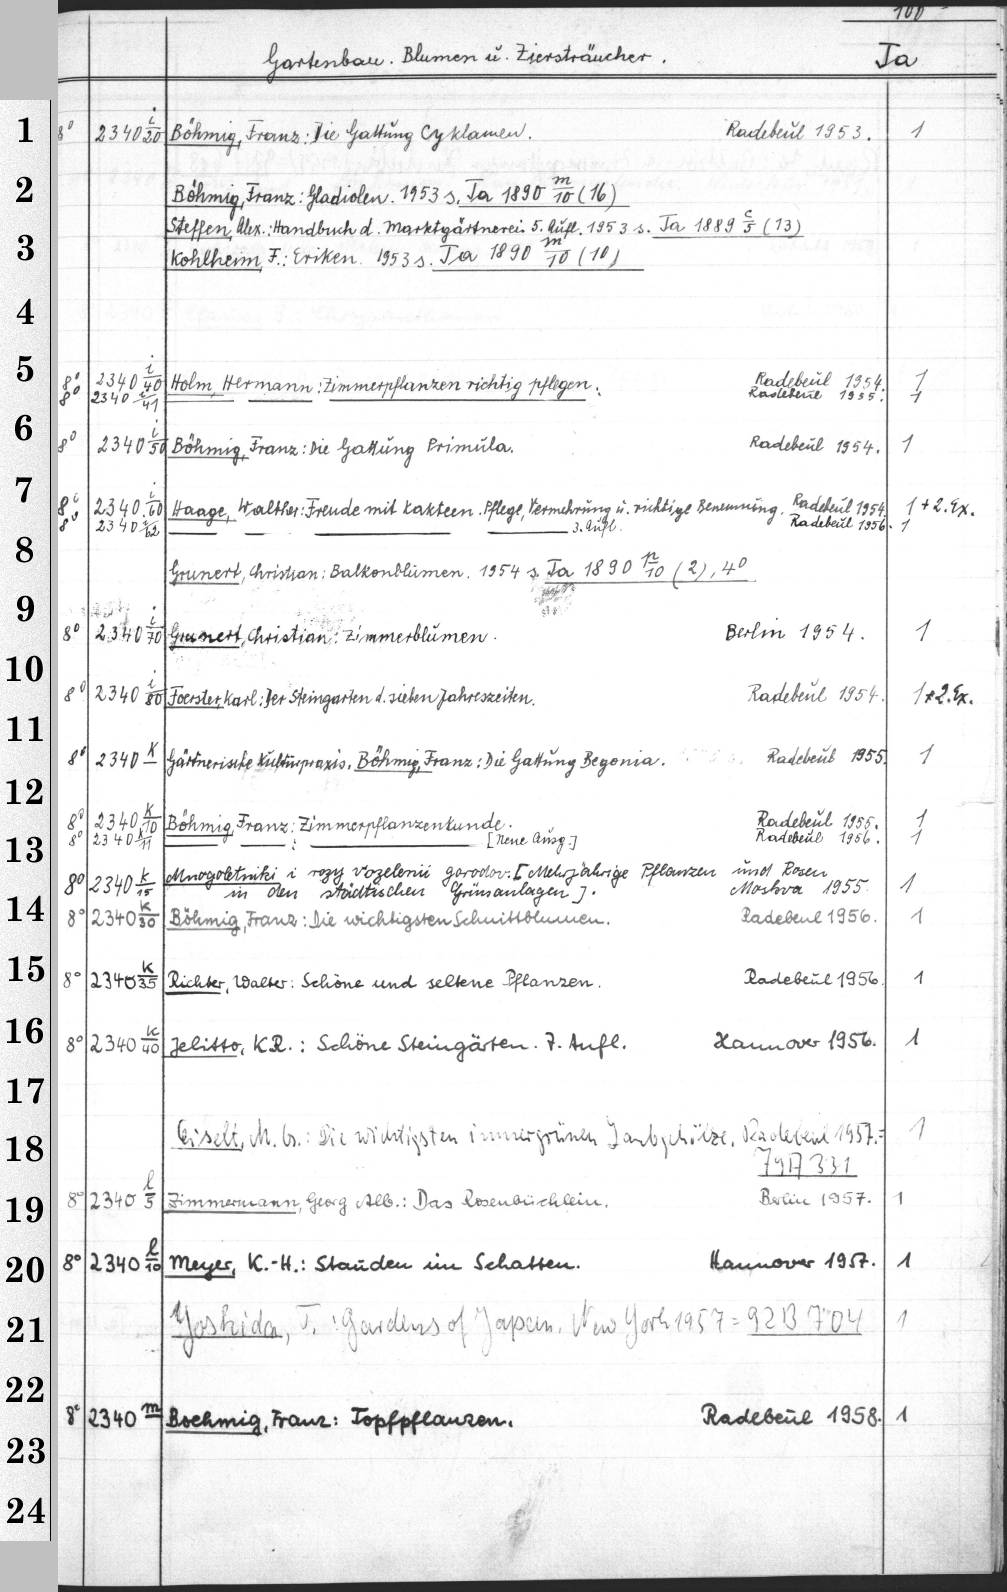 100
Gartenbau. Blumen u. Ziersträucher. Ja
1 8° 2340 i/20 Böhmig, Franz: Die Gattung Cyklamen. Radebeul 1953. 1
2 Böhmig, Franz: Gladiolen. 1953 s. Ja 1890 m/10 (16)
Steffen, Alex.: Handbuch d. Marktgärtnerei 5. Aufl. 1953 s. Ja 1889 c/5 (13)
3 Kohlheim, F.: Eriken. 1953 s. Ja 1890 m/10 (10)
4
5 8° 2340 i/40 Holm, Hermann: Zimmerpflanzen richtig pflegen. Radebeul 1954. 1
8° 2340 i/41 Radebeul 1955. 1
6 8° 2340 i/50 Böhmig, Franz: Die Gattung Primula. Radebeul 1954. 1
7 8° 2340 i/60 Haage, Walther: Freude mit Kakteen. Pflege, Vermehrung u. richtige Benennung. Radebeul 1954 1 + 2. Ex.
8° 2340 i/62 3. Aufl. Radebeul 1956. 1
8 Grunert, Christian: Balkonblumen. 1954 s. Ja 1890 n/10 (2), 4°
9 8° 2340 i/70 Grunert, Christian: Zimmerblumen. Berlin 1954. 1
10 8° 2340 i/80 Foerster, Karl: Der Steingarten d. sieben Jahreszeiten. Radebeul 1954. 1 + 2. Ex.
11 8° 2340 K Gärtnerische Kulturpraxis. Böhmig, Franz: Die Gattung Begonia. Radebeul 1955. 1
12 8° 2340 K/10 Böhmig, Franz: Zimmerpflanzenkunde. Radebeul 1955. 1
13 8° 2340 K/11 [Neue Ausg.] Radebeul 1956. 1
8° 2340 K/15 Mnogoletniki i rozy v ozelenii gorodov. [Mehrjährige Pflanzen und Rosen
in den städtischen Grünanlagen]. Moskva 1955. 1
14 8° 2340 K/30 Böhmig, Franz: Die wichtigsten Schnittblumen. Radebeul 1956. 1
15 8° 2340 K/35 Richter, Walter: Schöne und seltene Pflanzen. Radebeul 1956. 1
16 8° 2340 K/40 Jelitto, K.R.: Schöne Steingärten. 7. Aufl. Hannover 1956. 1
17
18 Eiselt, M. G.: Die wichtigsten immergrünen Laubgehölze. Radebeul 1957. = 1
79A 331
19 8° 2340 l/5 Zimmermann, Georg Alb.: Das Rosenbüchlein. Berlin 1957. 1
20 8° 2340 l/10 Meyer, K.-H.: Stauden im Schatten. Hannover 1957. 1
21 Yoshida, T.: Gardens of Japan. New York 1957 = 92B 704 1
22 8° 2340 m Boehmig, Franz: Topfpflanzen. Radebeul 1958. 1
23
24